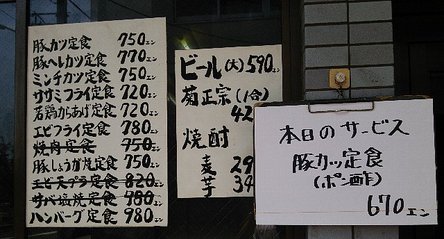 豚カツ定食 750エン
豚ヘレカツ定食 770エン
ミンチカツ定食 750エン
ササミフライ定食 720エン
若鶏からあげ定食 720エン
エビフライ定食 780エン
焼肉定食 750エン
豚しょうが焼定食 750エン
エビ天プラ定食 820エン
サバ塩焼定食 700エン
ハンバーグ定食 980エン
ビール(大)590エン
菊正宗(1合)
42
焼酎
麦 29
芋 34
本日のサービス
豚カツ定食
(ポン酢)
670エン